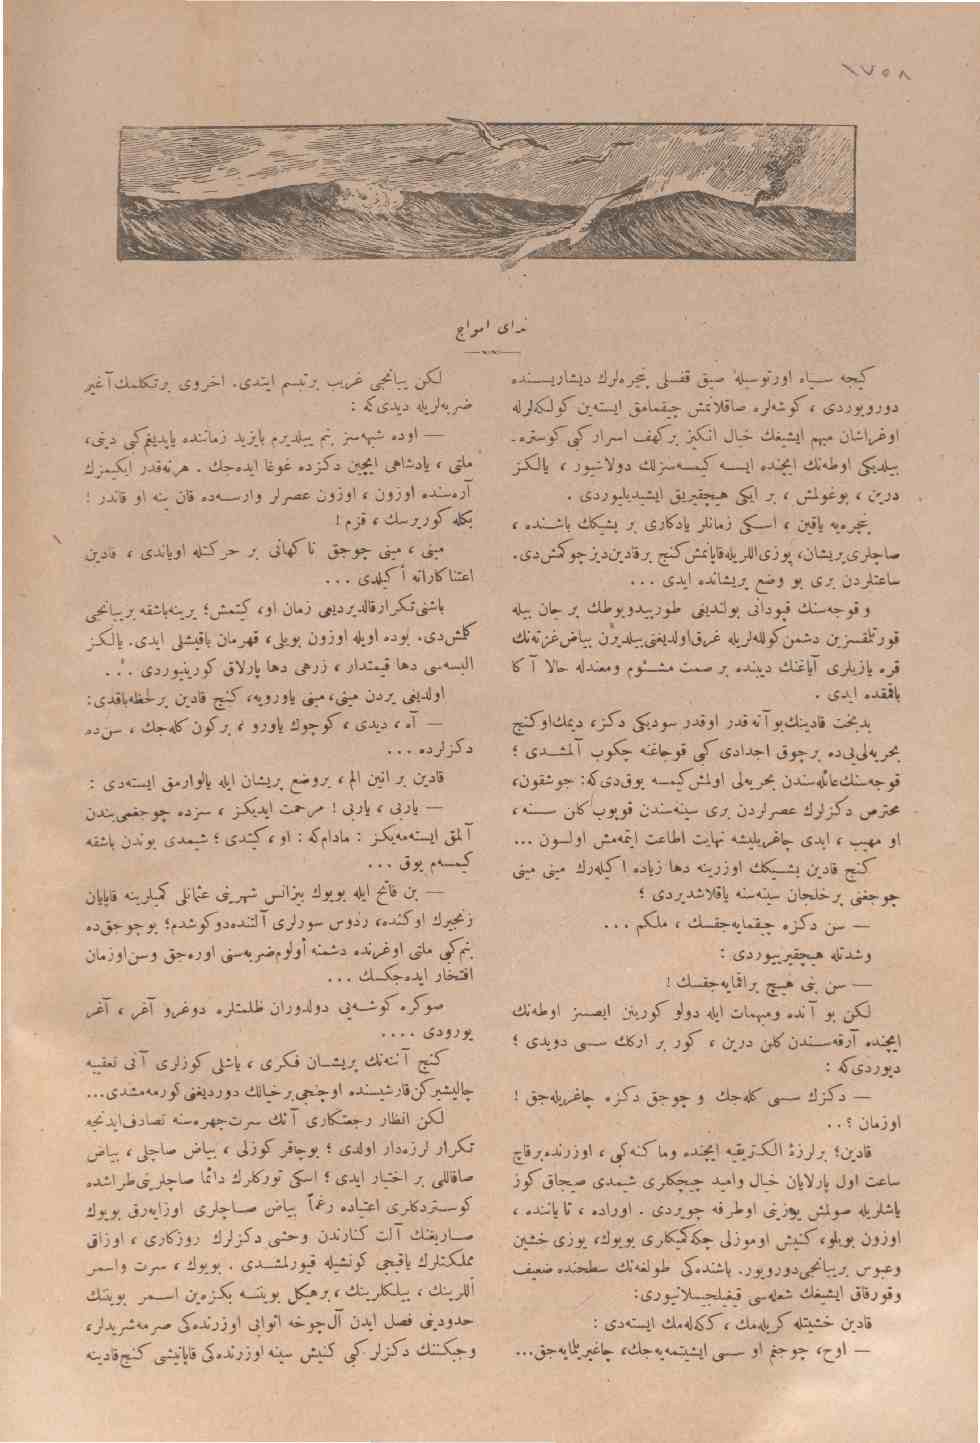 ١٧٥٨
ندای امواج
كیجه سیاه اورتوسیله صیق قفسلی پنجره‌لرك دیشاریسنده
دورویوردی ، كوشه‌لره صاقلانمش چیقمامق ایسته‌ین كولكه‌لرله
اوغراشان مبهم ایشیغك خیال انكیز بر كهف اسرار كبی كوستره‌-
بیلدیكی اوطه‌نك ایچنده ایسه كیمسه‌سزلك دولاشیور ، یالكز
درین ، بوغولمش ، بر ایكی هیچقیریق ایشیدیلیوردی .
پنجره‌یه یاقین ، اسكی زمانلر یادكاری بر بشیكك باشنده ،
صاچلری پریشان، یوزی اللریله قاپانمش كنج بر قادین دیز چوكمش‌دی.
ساعتلردن بری بو وضع پریشانده ایدی ...
و قوجه‌سنك قپودانی بولندیغی طورپیدوبوطك بر جان بیله
قورتلقسزین دشمن كولله‌لریله غرق اولدیغنی بیلدیرن بیاض غزته‌نك
قره یازیلری آیاغنك دیبنده بر صمت مشئوم ومعندله حالا آ كا
باقمقده ایدی .
بدبخت قادینك بو آنه قدر اوقدر سودیكی دكز، دیمك او كنج
بحریه‌لی‌یی ده برچوق اجدادی كبی قوجاغنه چكوب آلمشدی ؛
قوجه‌سنك عائله‌سندن بحریه‌لی اولمش كیمسه یوق‌دی كه: جوشقون،
محترص دكزلرك عصرلردن بری سینه‌سندن قوپوب كلن سسنه ،
او مهیب ، ایدی چاغریلیشه نهایت اطاعت ایتمه‌مش اولسون ...
كنج قادین بشیكك اوزرینه دها زیاده اكیله‌رك مینی مینی
چوجغنی بر خلجان سینه‌سنه یاقلاشدیردی ؛
— سن دكزه چیقمایه‌جقسك ، ملكم ...
وشدتله هیچقیرییوردی :
— سن بنی هیچ براقمایه‌جقسك !
لكن بو آنده ومبهمات ایله دولو كورینن ایصسز اوطه‌نك
ایچنده آرقه‌سندن كلن درین ، كور بر اركك سسی دویدی ؛
دیوردی كه :
— دكزك سسی كله‌جك و چوجق دكزه چاغریله‌جق !
اوزمان ؟ ..
قادین؛ بر لرزهٔ الكتریقیه ایچنده وما كنه‌كبی ، اوزرنده برقاچ
ساعت اول پارلایان خیال وامید چیچكلری شیمدی صیجاق كوز
یاشلریله صولمش یوزینی اوطرفه چویردی . اوراده ، تا یاننده ،
اوزون بویلو، كنیش اوموزلی چكه‌كمیكلری بویوك، یوزی خشین
وعبوس بریبانجی دورویور. باشنده‌كی طولغه‌نك سطحنده ضعیف
وقورقاق ایشیغك شعله‌سی قیغیلجیملانیوری:
قادین خشیتله كریله‌مك ، ككه‌له‌مك ایسته‌دی :
— اوح، چوجغم او سسی ایشیتمه‌یه‌جك، چاغیریلمایه‌جق...
لكن یبانجی غریب بر تبسم ایتدی. اخروی بر تكلمك آغیر
ضربه‌لریله دیدی كه :
— اوده شبهه‌سز بنم ییلدیرم بایزید زماننده یاپدیغم كبی دینی،
ملتی ، پادشاهی ایچین دكزده غوغا ایده‌جك . هر نه‌قدر ایكیمزك
آره‌سنده اوزون ، اوزون عصرلر وارسه‌ده قان ینه او قاندر !
بكله كوریرسك ، قزم !
مینی ، مینی چوجق ناكهانی بر حركتله اویاندی ، قادین
اعتناكارانه اكیلدی ...
باشنی تكرار قالدیردیغی زمان او، كیتمش؛ یرینه باشقه بریبانجی
كلمش‌دی. بوده اویله اوزون بویلی، قهرمان باقیشلی ایدی. یالكز
البسه‌سی دها قیمتدار ، زرهی دها پارلاق كورینیوردی ...
اولدیغی یردن مینی، مینی یاورویه، كنج قادین بر لحظه باقدی:
— آه ، دیدی ، كوچوك یاورو ، بر كون كله‌جك ، سن‌ده
دكزلرده ...
قادین بر انین الم ، بر وضع پریشان ایله یالوارمق ایسته‌دی :
— یاربی ، یاربی ! مرحمت ایدیكز ، سزده چوجغمی بندن
آلمق ایسته‌مه‌یكز : مادام‌كه : او ، كیتدی ؛ شیمدی بوندن باشقه
كیمسه‌م یوق ...
— بن فاتح ایله بویوك بیزانس شهرینی عثمانلی كمیلرینه قاپایان
زنجیرك اوكنده، ردوس سورلری آلتنده دوكوشدم؛ بو چوجق‌ده
بنم كبی ملتی اوغرنده دشمنه اولوم ضربه‌سنی اوره‌جق وسن اوزمان
افتخار ایده‌جكسك ...
صوكره كوشه‌یی دولدوران ظلمتلره دوغرو آغر ، آغر
یورودی ....
كنج آننه‌نك پریشان فكری ، یاشلی كوزلری آنی تعقیبه
چالیشیركن قارشیسنده اوچنجی بر خیالك دوردیغنی كورمه‌مشدی...
لكن انظار رجعتكاری آنك سرت چهره‌سنه تصادف ایدنجه
تكرار لرزه‌دار اولدی ؛ بو چاقر كوزلی ، بیاض صاچلی ، بیاض
صاقاللی بر اختیار ایدی ؛ اسكی توركلرك دائما صاچلرینی طراشده
كوستردكلری اعتیاده رغماً بیاض صاچلری اوزایه‌رق بویوك
صاریغنك آلت كنارندن وحشی دكزلرك روزكاری ، اوزاق
مملكتلرك یاقیجی كونشیله قیورلمشدی . بویوك ، سرت واسمر
اللرینك ، بیلكلرینك ، بر هیكل بویننه بكزه‌ین اسمر بوینك
حدودینی فصل ایدن آل چوخه اثوابی اوزرنده‌كی صرمه شریدلر،
وجبكنك دكزلر كبی كنیش سینه اوزرنده‌كی قاپانیشی كنج قادینه